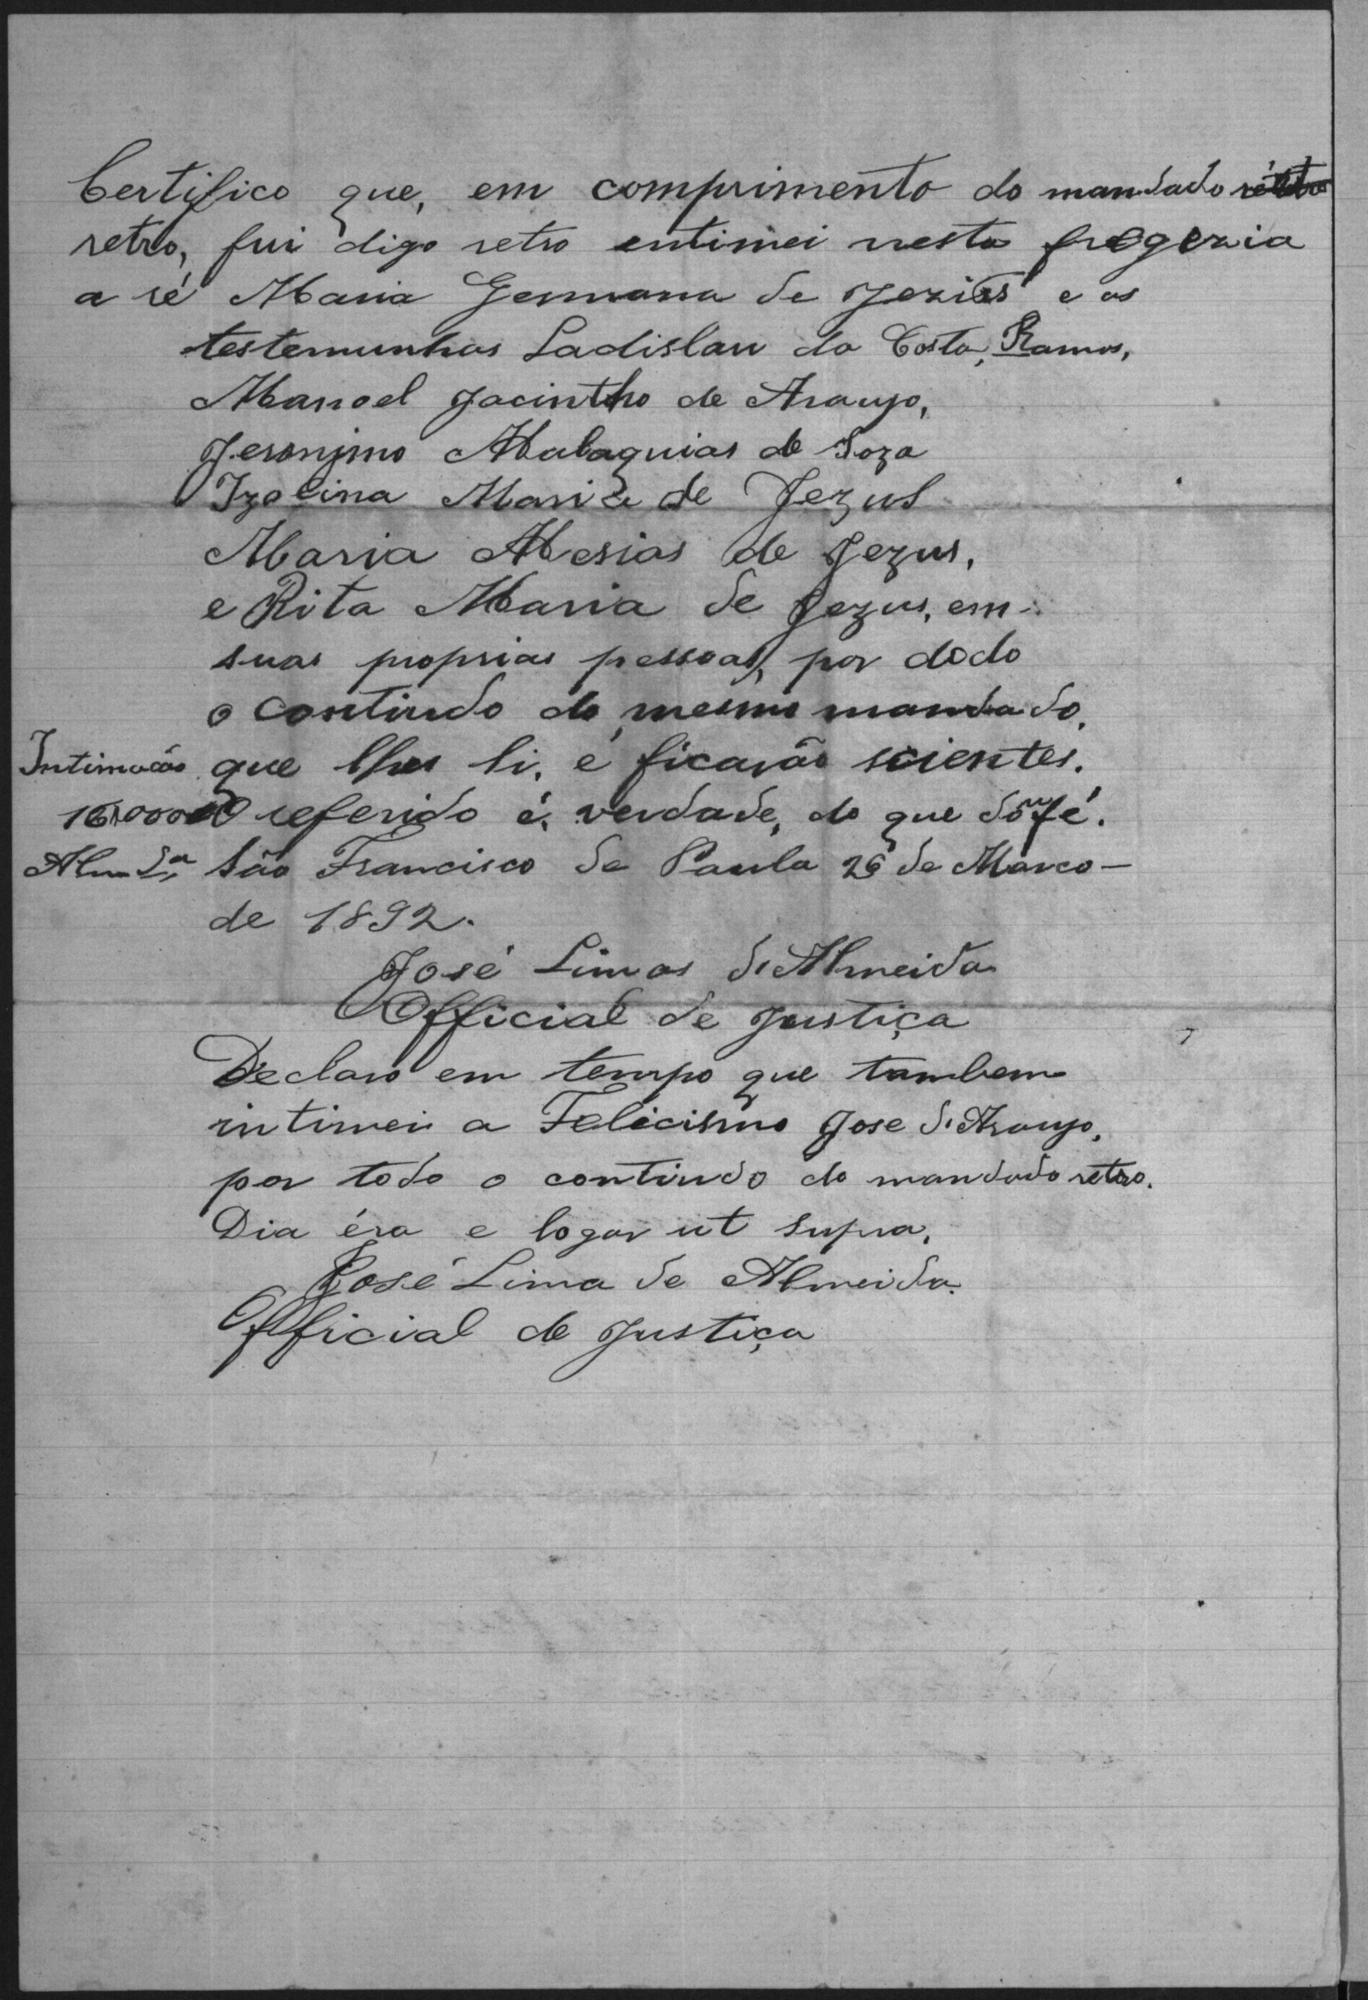 Certifico que, em comprimento do mandado
retro, fui digo retro entimei nesta fregezia
a ré Maria Germana de Jezus e as
testemunhas Ladislau da Costa, Ramos,
Manoel Jacintho de Araujo,
Jeronjmo Malaquias de Soza
Izolina Maria de Jezus
Maria Mesias de Jezus,
e Rita Maria de Jezus, em
suas proprias pessoas, por dodo
o contiudo do mesmo mandado,
Intimacão que lhes li, e ficarão scientes.
16\0000 O referido é, verdade, do que dou fé.
São Francisco de Paula 26 de Marco
de 1892.
José Limas d'Almeida
Official de Justiça
Declaro em tempo que tambem
intimei a Felicismo Jose d'Araujo,
por todo o contiudo do mandado retro.
Dia éra e logar ut supra,
José Lima de Almeida.
Official de Justiça